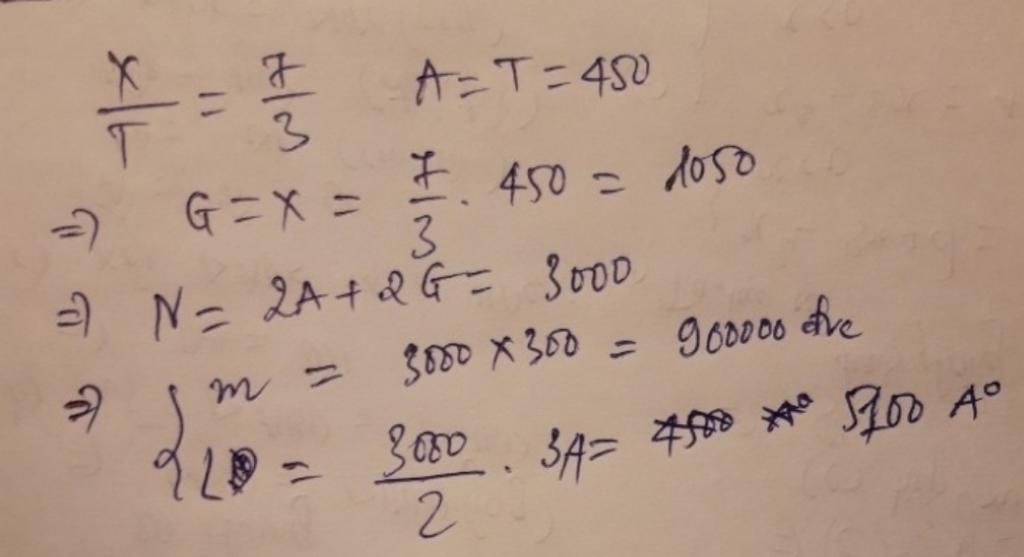 X/T = 7/3 A = T = 450
=> G = X = 7/3 . 450 = 1050
=> N = 2A + 2G = 3000
=> { m = 3000 x 300 = 900000 đvc
L = 3000/2 . 3A = 5100 A°